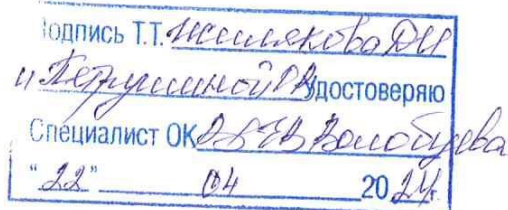 Подпись Т.Т. Жилякова Д.И
и Петрушиной Удостоверяю
Специалист ОК Волобуева
"22" 04 2024